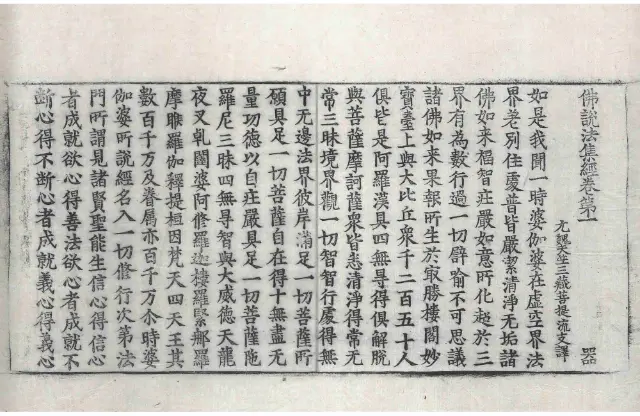 佛說法集經卷第一
元魏天竺三藏菩提流支譯 器
如是我聞一時婆伽婆在虛空界法
界差別住處普皆嚴潔清淨无垢諸
佛如来福智莊嚴如意所化超於三
界有為數行過一切辟喻不可思議
諸佛如来果報所生於㝡勝樓閣妙
寶臺上與大比丘衆千二百五十人
俱皆是阿羅漢具四無㝵得俱解脫
與菩薩摩訶薩衆皆悉清淨得常无
常三昧境界觀一切智智行處得無
中无邊法界彼岸滿足一切菩薩所
願具足一切菩薩自在得十無盡无
量功德以自莊嚴具足一切菩薩陁
羅尼三昧四無㝵智與大威德天龍
夜叉乹闥婆阿修羅迦樓羅緊那羅
摩睺羅伽釋提桓因梵天四天王其
數百千万及眷屬亦百千万尒時婆
伽婆所說經名入一切修行次第法
門所謂見諸賢聖能生信心得信心
者成就欲心得善法欲心者成就不
断心得不断心者成就義心得義心